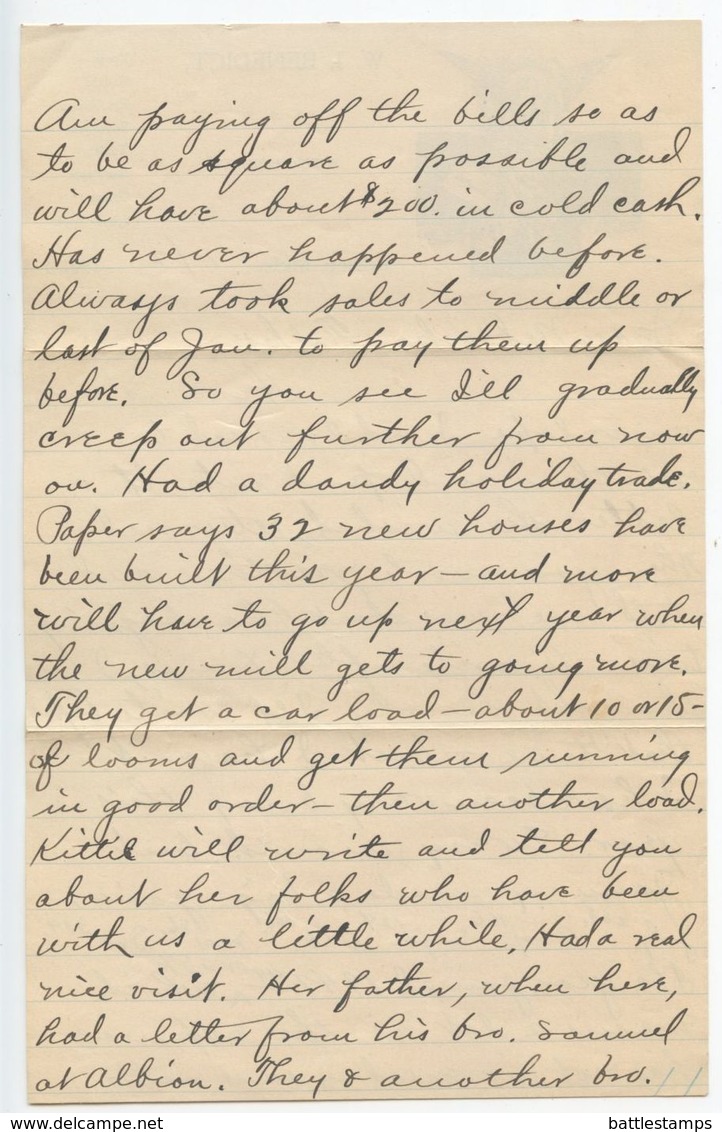 Am paying off the bills so as
to be as square as possible and
will have about $200. in cold cash.
Has never happened before.
Always took sales to middle or
last of Jan. to pay them up
before. So you see I'll gradually
creep out further from now
on. Had a dandy holiday trade.
Paper says 32 new houses have
been built this year — and more
will have to go up next year when
the new mill gets to going more.
They get a car load — about 10 or 15 -
of looms and get them running
in good order — then another load.
Kittie will write and tell you
about her folks who have been
with us a little while. Had a real
nice visit. Her father, when here,
had a letter from his bro. Samuel
at Albion. They & another bro.
battlestamps
delcampe.net